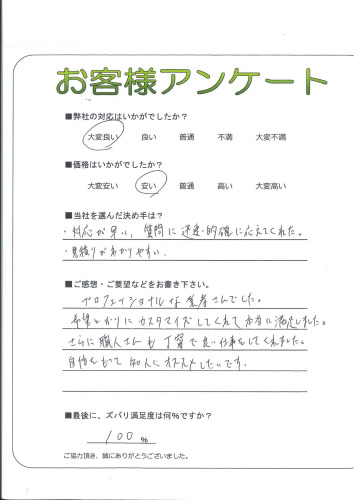 お客様アンケート
■弊社の対応はいかがでしたか?
大変良い 良い 普通 不満 大変不満
■価格はいかがでしたか?
大変安い 安い 普通 高い 大変高い
■当社を選んだ決め手は?
・対応が早い、質問に迅速・的確に応えてくれた。
・見積りがわかりやすい
■ご感想・ご要望などをお書き下さい。
プロフェッショナルな業者さんでした。
希望どおりにカスタマイズしてくれて本当に満足しました。
さらに職人さんも丁寧で良い仕事をしてくれました。
自信をもって知人にオススメしたいです。
■最後に、ズバリ満足度は何%ですか?
100 %
ご協力頂き、誠にありがとうございました。